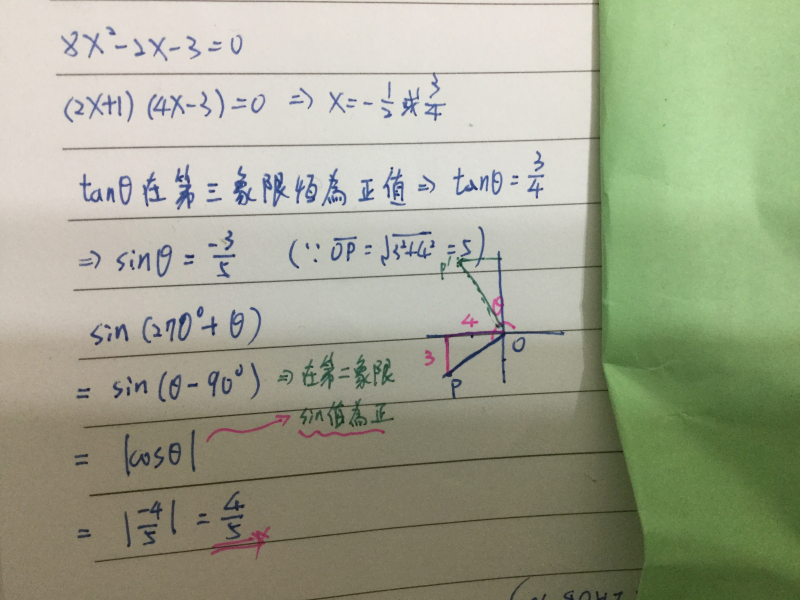 8x²-2x-3=0
(2x+1)(4x-3)=0 ⇒ x=-1/2 或 3/4
tanθ在第三象限恆為正值 ⇒ tanθ=3/4
⇒ sinθ=-3/5 (∵ OP̅=√(3²+4²)=5)
P'
θ
4
3
O
P
sin(270°+θ)
= sin(θ-90°) ⇒ 在第二象限
sin值為正
= |cosθ|
= |-4/5| = 4/5